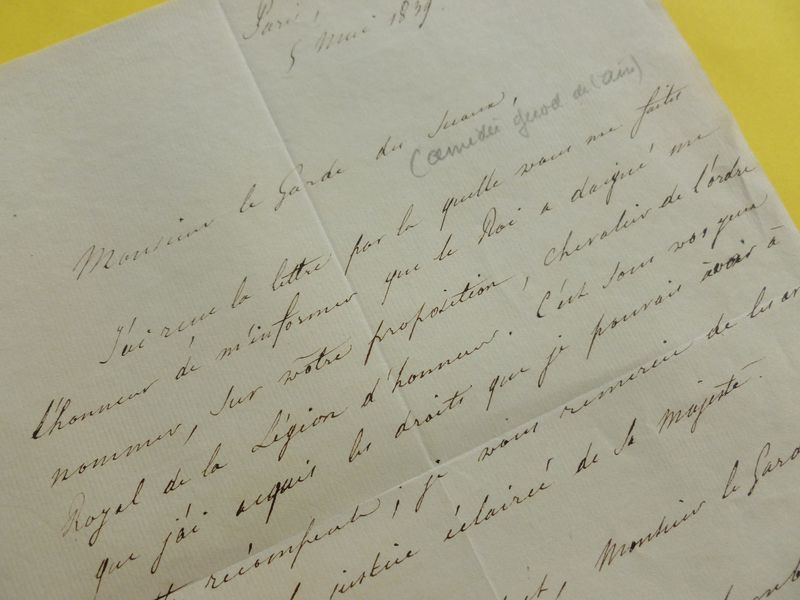 Paris,
5 Mai 1839.
Monsieur le Garde des Sceaux,
J'ai reçu la lettre par la quelle vous me faites
l'honneur de m'informer que le Roi a daigné me
nommer, sur votre proposition, chevalier de l'ordre
Royal de la Légion d'honneur. C'est sous vos yeux
que j'ai acquis les droits que je pouvais avoir à
récompense; je vous remercie de les
justice éclairée de Sa Majesté.
Monsieur le Gard